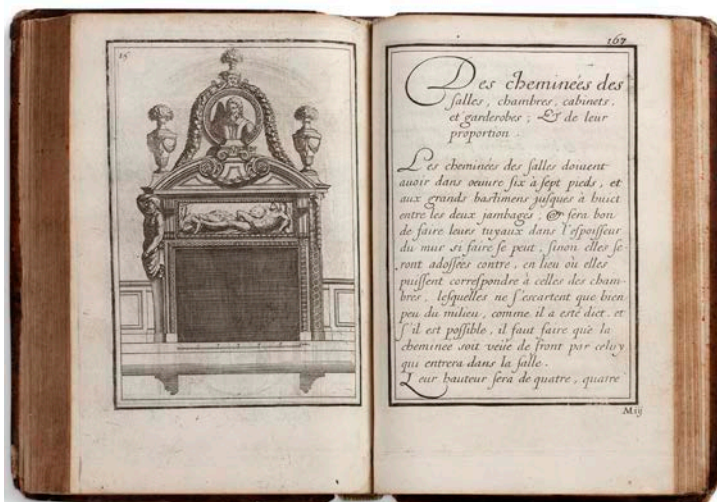 15
167
Des cheminées des
salles, chambres, cabinets,
et garderobes; & de leur
proportion.
Les cheminées des salles doivent
avoir dans oeuvre six à sept pieds, et
aux grands bastimens jusques à huict
entre les deux jambages; & sera bon
de faire leurs tuyaux dans l'espoisseur
du mur si faire se peut, sinon elles se-
ront adossées contre, en lieu où elles
puissent correspondre à celles des cham-
bres, lesquelles ne s'escartent que bien
peu du milieu, comme il a esté dict, et
s'il est possible, il faut faire que la
cheminee soit veüe de front par celuy
qui entrera dans la salle.
Leur hauteur sera de quatre, quatre
Mij